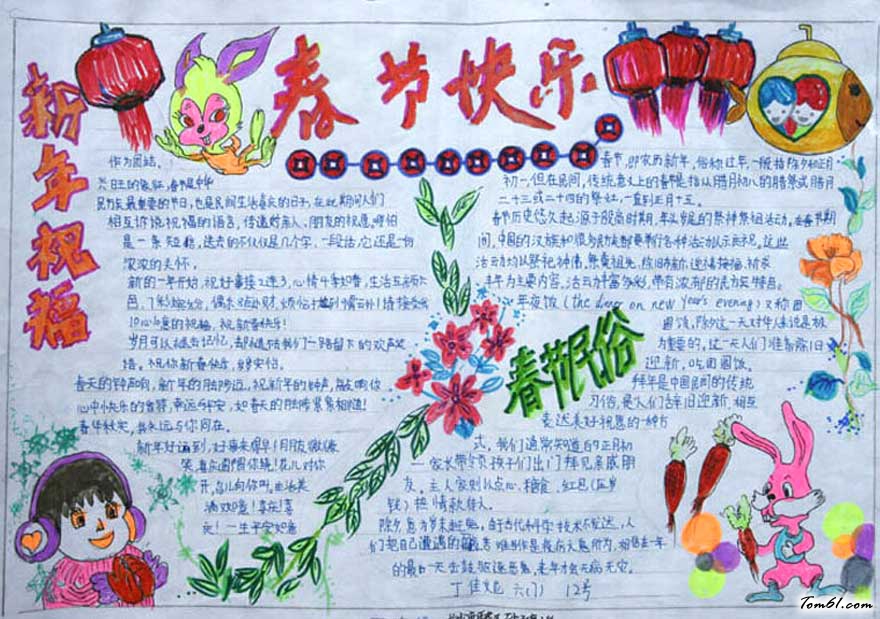 春节快乐
新年祝福
作为团结、
兴旺的象征,春节是中华
民族最重要的节日,也是民间生活喜庆的日子,在此期间人们
相互诉说祝福的语言,传递对亲人、朋友的祝愿。哪怕
是一条短信,送去的不仅仅是几个字,一段话,它还是一份
浓浓的关怀。
新的一年开始,祝好事接2连3,心情4季如春,生活五颜六
色,7彩缤纷,偶尔8点小财,烦恼抛到9霄云外!请接受我
10心10意的祝福,祝新春快乐!
岁月可以褪去记忆,却褪不去我们一路留下的欢声笑
语。祝你新春快乐,岁岁安怡。
春天的钟声响,新年的脚步迈,祝新年的钟声,敲响你
心中快乐的音符,幸运与平安,如春天的脚步紧紧相随!
春华秋实,我永远与你同在。
新年好运到,好事来得早!朋友微微
笑,喜庆围你绕!花儿对你
开,鸟儿向你叫。生活美
满欢喜!幸庆!喜
庆!一生平安如意
春节,即农历新年,俗称过年,一般指除夕和正月
初一,但在民间,传统意义上的春节是指从腊月初八的腊祭或腊月
二十三或二十四的祭灶,一直到正月十五。
春节历史悠久,起源于殷商时期,年头岁尾的祭神祭祖活动。在春节期
间,中国的汉族和很多民族都要举行各种活动以示庆祝。这些
活动均以祭祀神佛、祭奠祖先、除旧布新、迎禧接福、祈求
丰年为主要内容。活动丰富多彩,带有浓郁的民族特色。
年夜饭(the dinner on new Year's evening)又称团
圆饭,除夕这一天对华人来说是极
为重要的,这一天人们准备除旧
迎新,吃团圆饭。
春节民俗
拜年是中国民间的传统
习俗,是人们辞旧迎新、相互
表达美好祝愿的一种方
式。我们通常知道的正月初
一家长带领孩子们出门拜见亲戚朋
友。主人家则以点心、糖食、红包(压岁
钱)热情款待。
们把自己遭遇的
的最一天击鼓驱逐恶鬼,来年才会无病无灾。
丁佳 六(1) 12号
Tom61.com